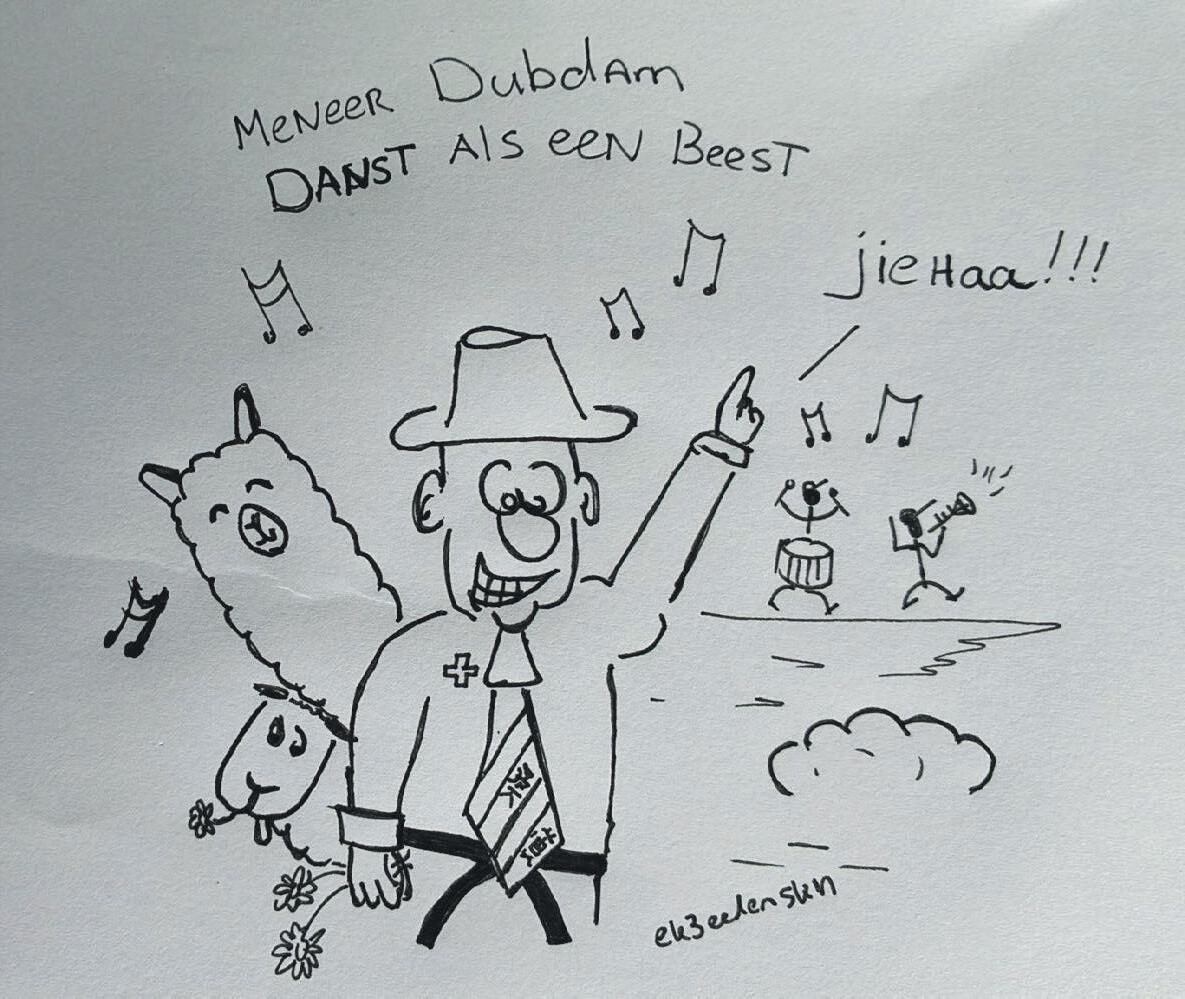 MeNeeR DubdAm
DANST Als eeN BeesT
jieHaa!!!